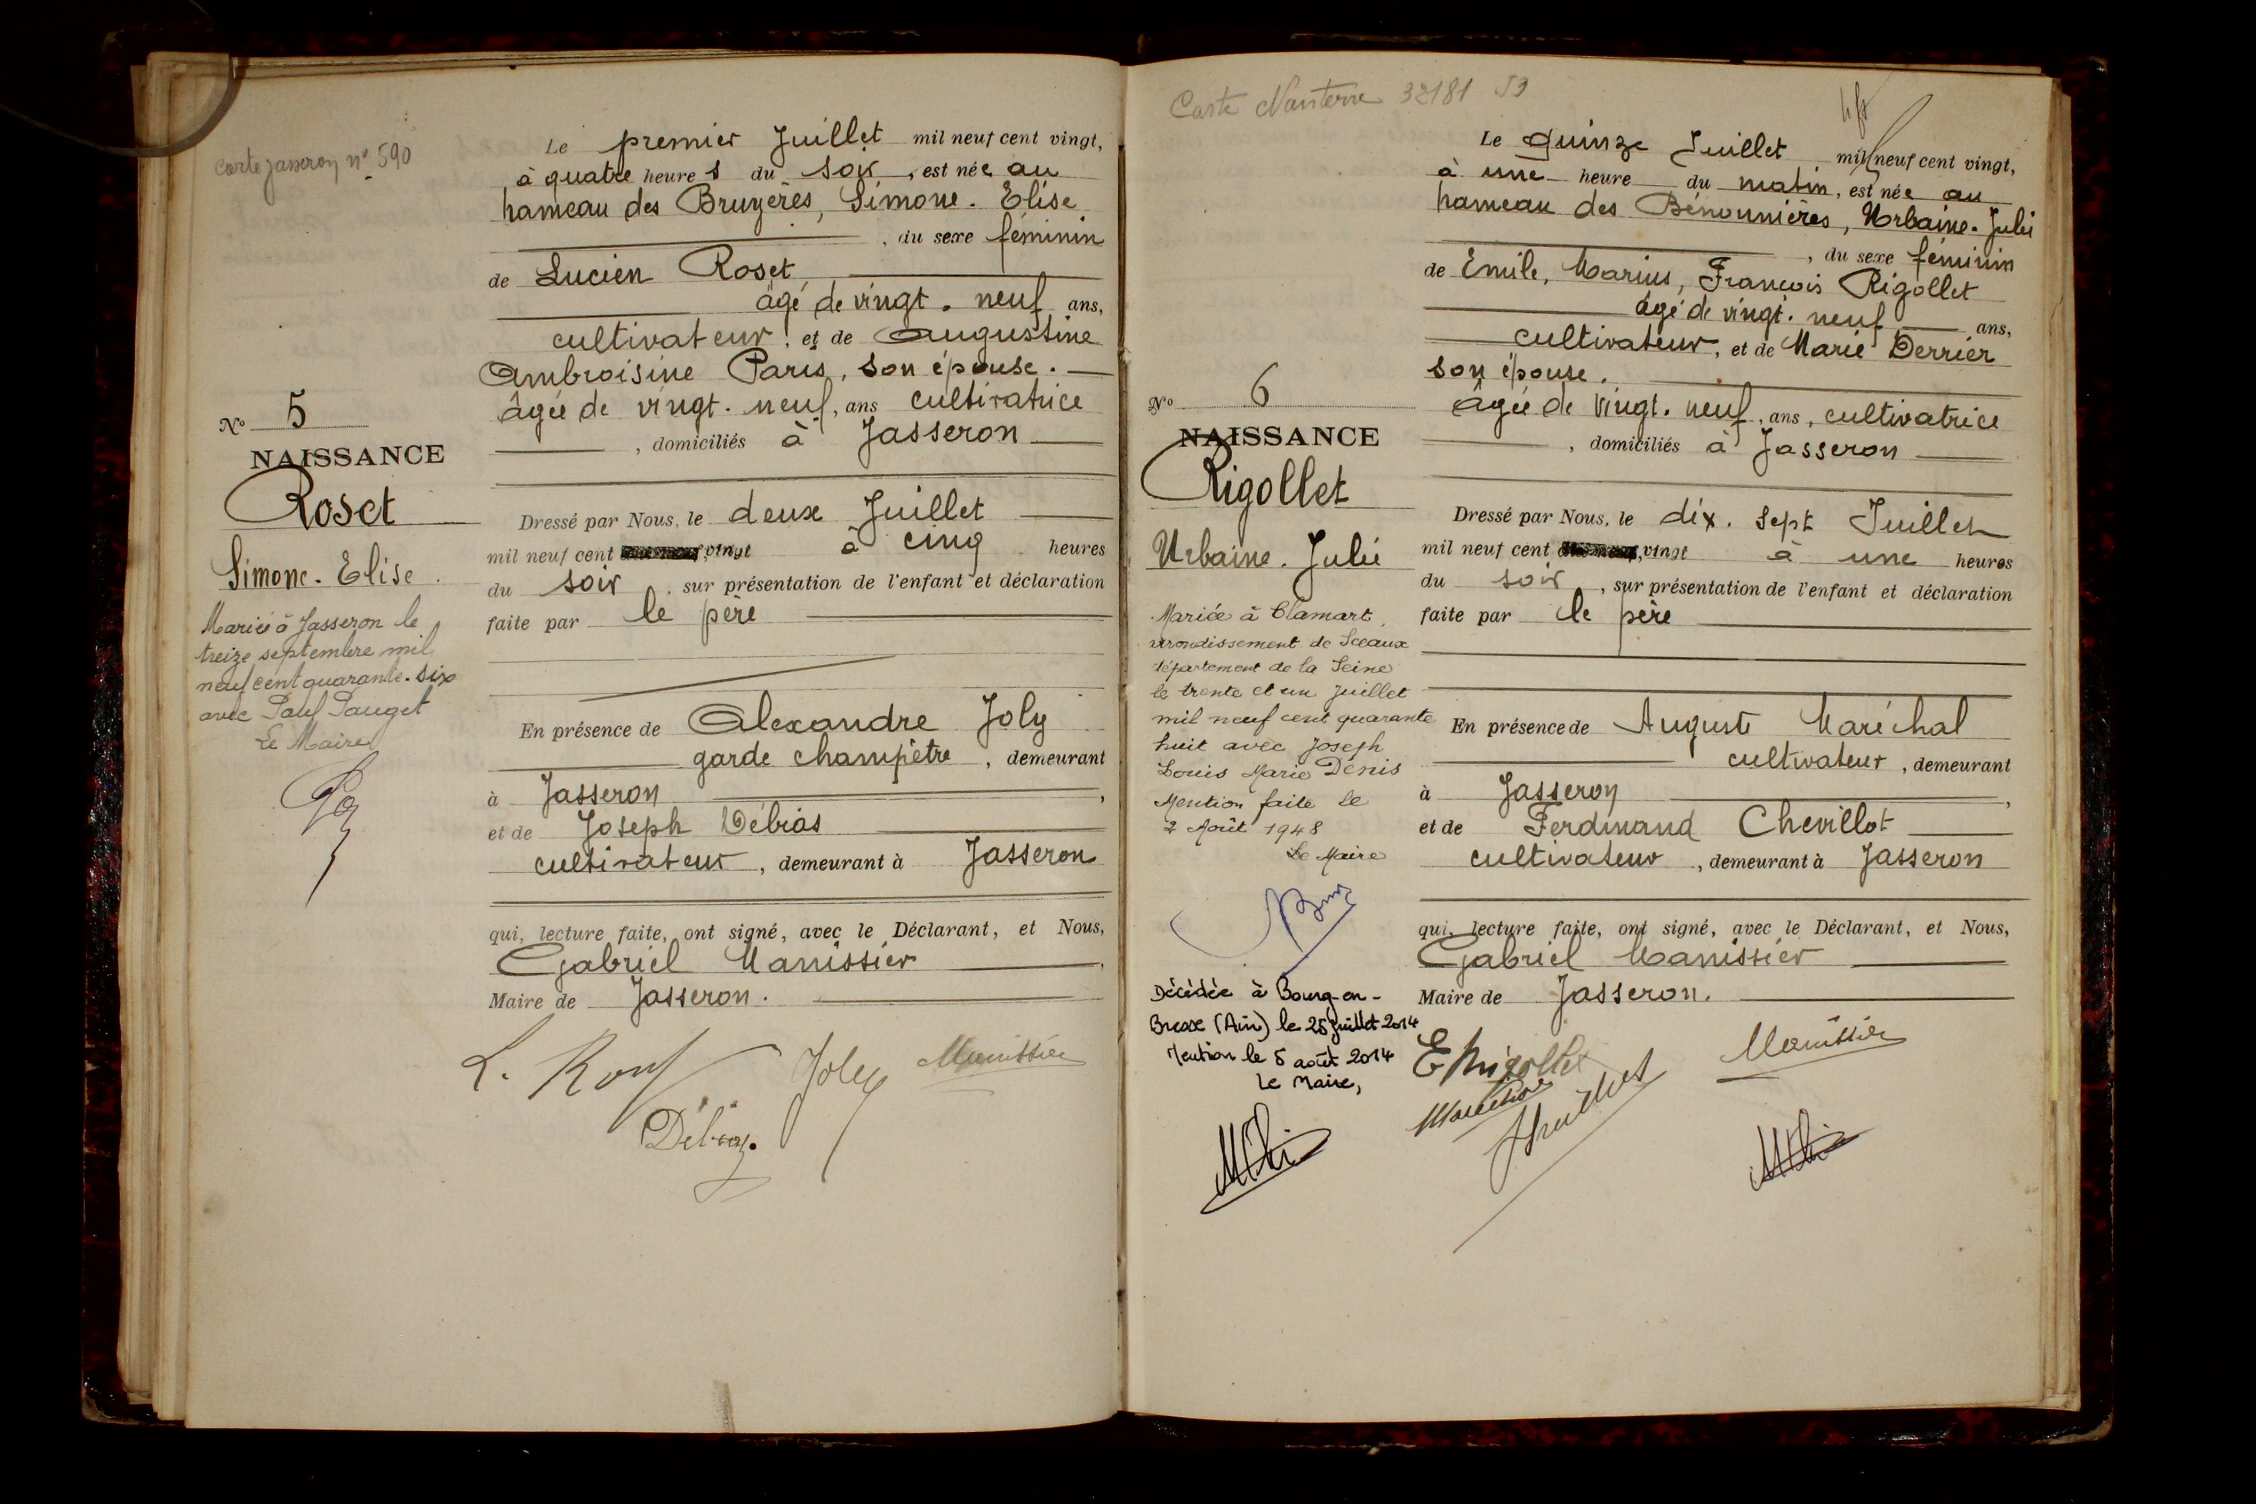 Carte Jasseron nº 590
Nº 5
NAISSANCE
Roset
Simone. Elise
Mariée à Jasseron le
treize septembre mil
neuf cent quarante-six
avec Paul Pauget
Le Maire
Le premier Juillet mil neuf cent vingt,
à quatre heures du soir, est née au
hameau des Bruyères, Simone. Elise
, du sexe féminin
de Lucien Roset
âgé de vingt. neuf ans,
cultivateur, et de Augustine
Ambroisine Paris, son épouse.
âgée de vingt. neuf, ans cultivatrice
, domiciliés à Jasseron
Dressé par Nous, le deux Juillet
mil neuf cent vingt à cinq heures
du soir, sur présentation de l'enfant et déclaration
faite par le père
En présence de Alexandre Joly
garde champêtre, demeurant
à Jasseron,
et de Joseph Débias
cultivateur, demeurant à Jasseron
qui, lecture faite, ont signé, avec le Déclarant, et Nous,
Gabriel Manissier,
Maire de Jasseron.
L. Roset Joly Manissier
Carte Nanterre 32181
Nº 6
NAISSANCE
Rigollet
Urbaine. Julie
Mariée à Clamart,
arrondissement de Sceaux
département de la Seine
le trente et un Juillet
mil neuf cent quarante
huit avec Joseph
Louis Marie Denis
Mention faite le
2 Août 1948
Le Maire
Décédée à Bourg-en-
Bresse (Ain) le 25 juillet 2014
Mention le 5 août 2014
Le Maire,
Le quinze Juillet mil neuf cent vingt,
à une heure du matin, est née au
hameau des Bénonnières, Urbaine. Julie
, du sexe féminin
de Emile, Marius, François Rigollet
âgé de vingt. neuf ans,
cultivateur, et de Marie Derrier
son épouse.
âgée de vingt. neuf, ans, cultivatrice
, domiciliés à Jasseron
Dressé par Nous, le dix. sept Juillet
mil neuf cent vingt à une heures
du soir, sur présentation de l'enfant et déclaration
faite par le père
En présence de Auguste Maréchal
cultivateur, demeurant
à Jasseron,
et de Ferdinand Chevillot
cultivateur, demeurant à Jasseron
qui, lecture faite, ont signé, avec le Déclarant, et Nous,
Gabriel Manissier
Maire de Jasseron.
E Rigollet Manissier